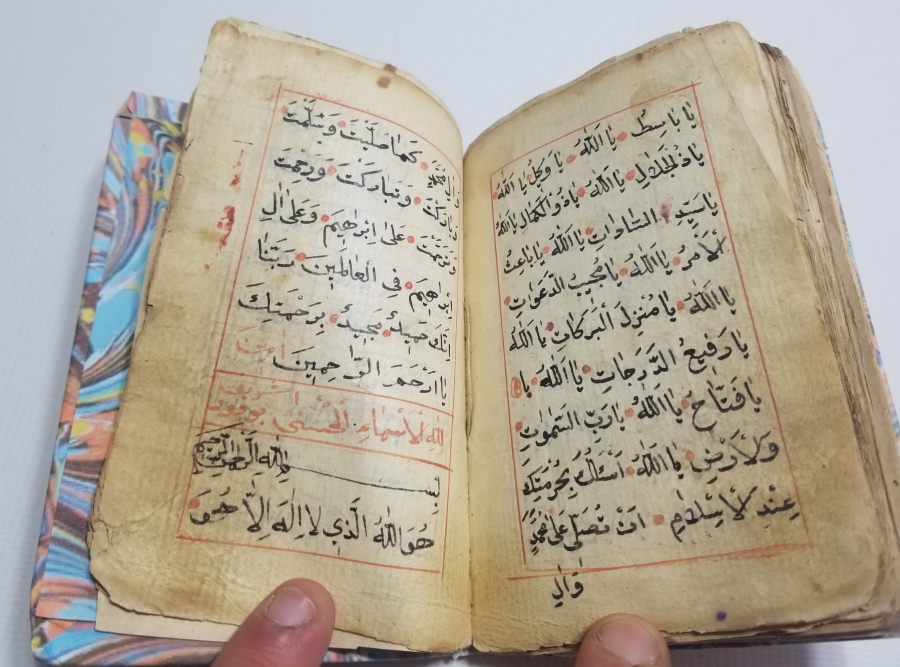 يَا بَاسِطُ يَا اَللّٰهُ يَا وَكِيلُ يَا اَللّٰهُ
يَاذَ الْجَلَالِ يَا اَللّٰهُ يَاذُو الْكَمَالِ يَا اَللّٰهُ
يَا سَيِّدَ السَّادَاتِ يَا اَللّٰهُ يَا بَاعِثَ
لْاَمْرِ يَا اَللّٰهُ يَا مُجِيبَ الدَّعَوَاتِ
يَا اَللّٰهُ يَا مُنْزِلَ الْبَرَكَاتِ يَا اَللّٰهُ
يَا رَفِيعَ الدَّرَجَاتِ يَا اَللّٰهُ يَا
يَا فَتَّاحُ يَا اَللّٰهُ يَا رَبَّ السَّمٰوَاتِ
وَلْاَرْضِ يَا اَللّٰهُ اَسْئَلُكَ بِحُرْمَتِكَ
عِنْدِ لْاِسْلَامِ اَنْ تُصَلِّىَ عَلٰى مُحَمَّدٍ
وَاٰلِ
وَاٰلِ مُحَمَّدٍ كَمَا صَلَّيْتَ وَسَلَّمْتَ
وَبَارَكْتَ وَتَبَارَكْتَ وَرَحِمْتَ
وَتَرَحَّمْتَ عَلٰى اِبْرٰهِيمَ وَعَلٰى اٰلِ
اِبْرٰاهِيمَ فِى الْعَالَمِينَ رَبَّنَا
اِنَّكَ حَمِيدٌ مَجِيدٌ بِرَحْمَتِكَ
يَا اَرْحَمَ الرَّاحِمِينَ اٰمِينَ
لِلّٰهِ لْاَسْمَاءِ الْحُسْنٰى بُودُرْ
بِسْمِ اللّٰهِ الرَّحْمٰنِ الرَّحِيمِ
هُوَ اللّٰهُ الَّذِي لَا اِلٰهَ اِلَّا هُوَ